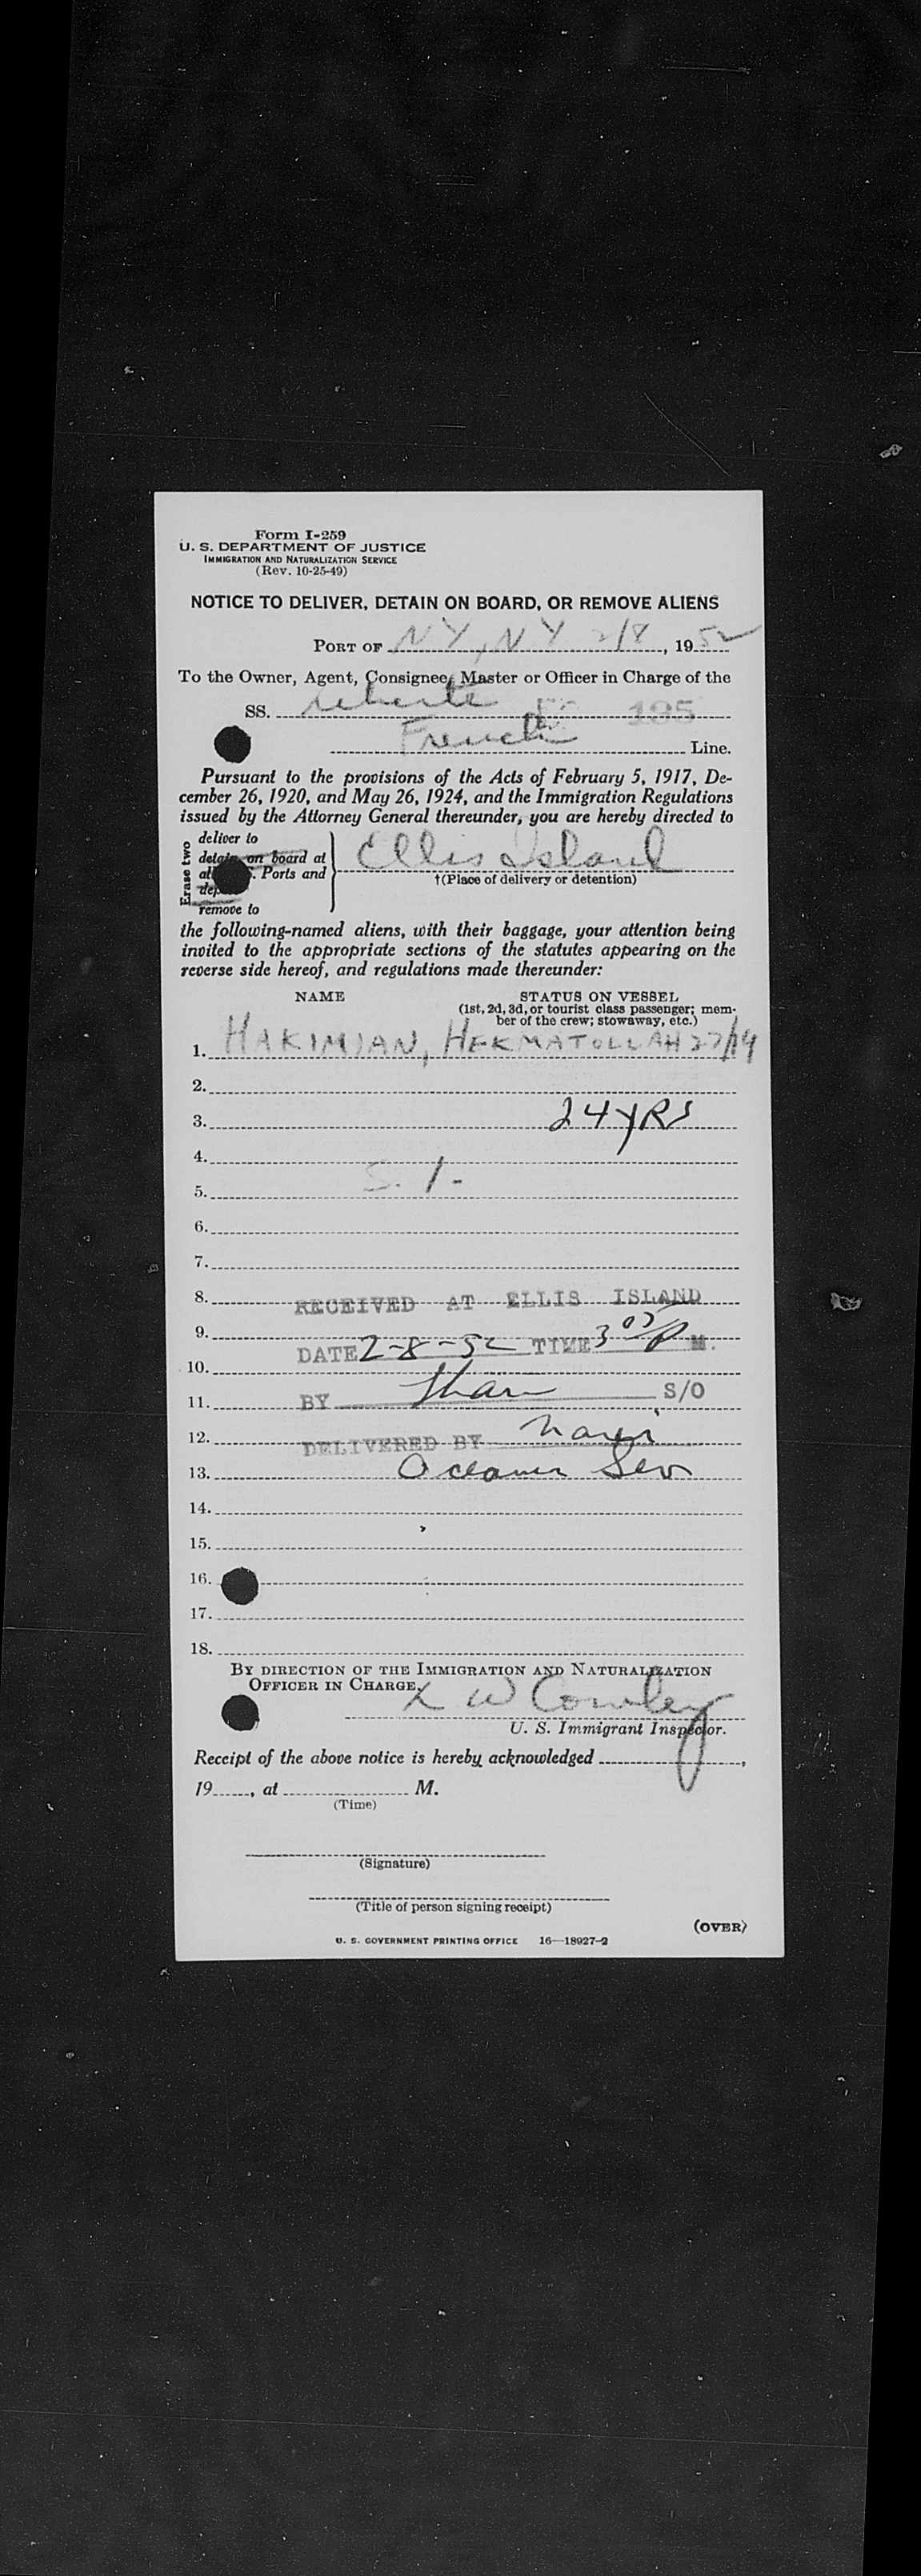 Form I-259
U. S. DEPARTMENT OF JUSTICE
IMMIGRATION AND NATURALIZATION SERVICE
(Rev. 10-25-49)
NOTICE TO DELIVER, DETAIN ON BOARD, OR REMOVE ALIENS
PORT OF NY, NY 2/8, 1952
To the Owner, Agent, Consignee, Master or Officer in Charge of the
SS. Liberte 135
French Line.
Pursuant to the provisions of the Acts of February 5, 1917, De-
cember 26, 1920, and May 26, 1924, and the Immigration Regulations
issued by the Attorney General thereunder, you are hereby directed to
Erase two
deliver to
detain on board at
Ports and
remove to
Ellis Island
†(Place of delivery or detention)
the following-named aliens, with their baggage, your attention being
invited to the appropriate sections of the statutes appearing on the
reverse side hereof, and regulations made thereunder:
NAME STATUS ON VESSEL
(1st, 2d, 3d, or tourist class passenger; mem-
ber of the crew; stowaway, etc.)
1. HAKIMIAN, HEKMATOLLAH 27/14
2.
3. 24 YRS
4.
5. S. I.
6.
7.
8. RECEIVED AT ELLIS ISLAND
9. DATE 2-8-52 TIME 3 05 P M.
10.
11. BY S/O
12. DELIVERED BY
13.
14.
15.
16.
17.
18.
BY DIRECTION OF THE IMMIGRATION AND NATURALIZATION
OFFICER IN CHARGE.
L W Conley
U. S. Immigrant Inspector.
Receipt of the above notice is hereby acknowledged ,
19 , at M.
(Time)
(Signature)
(Title of person signing receipt)
(OVER)
U. S. GOVERNMENT PRINTING OFFICE 16—18927-2